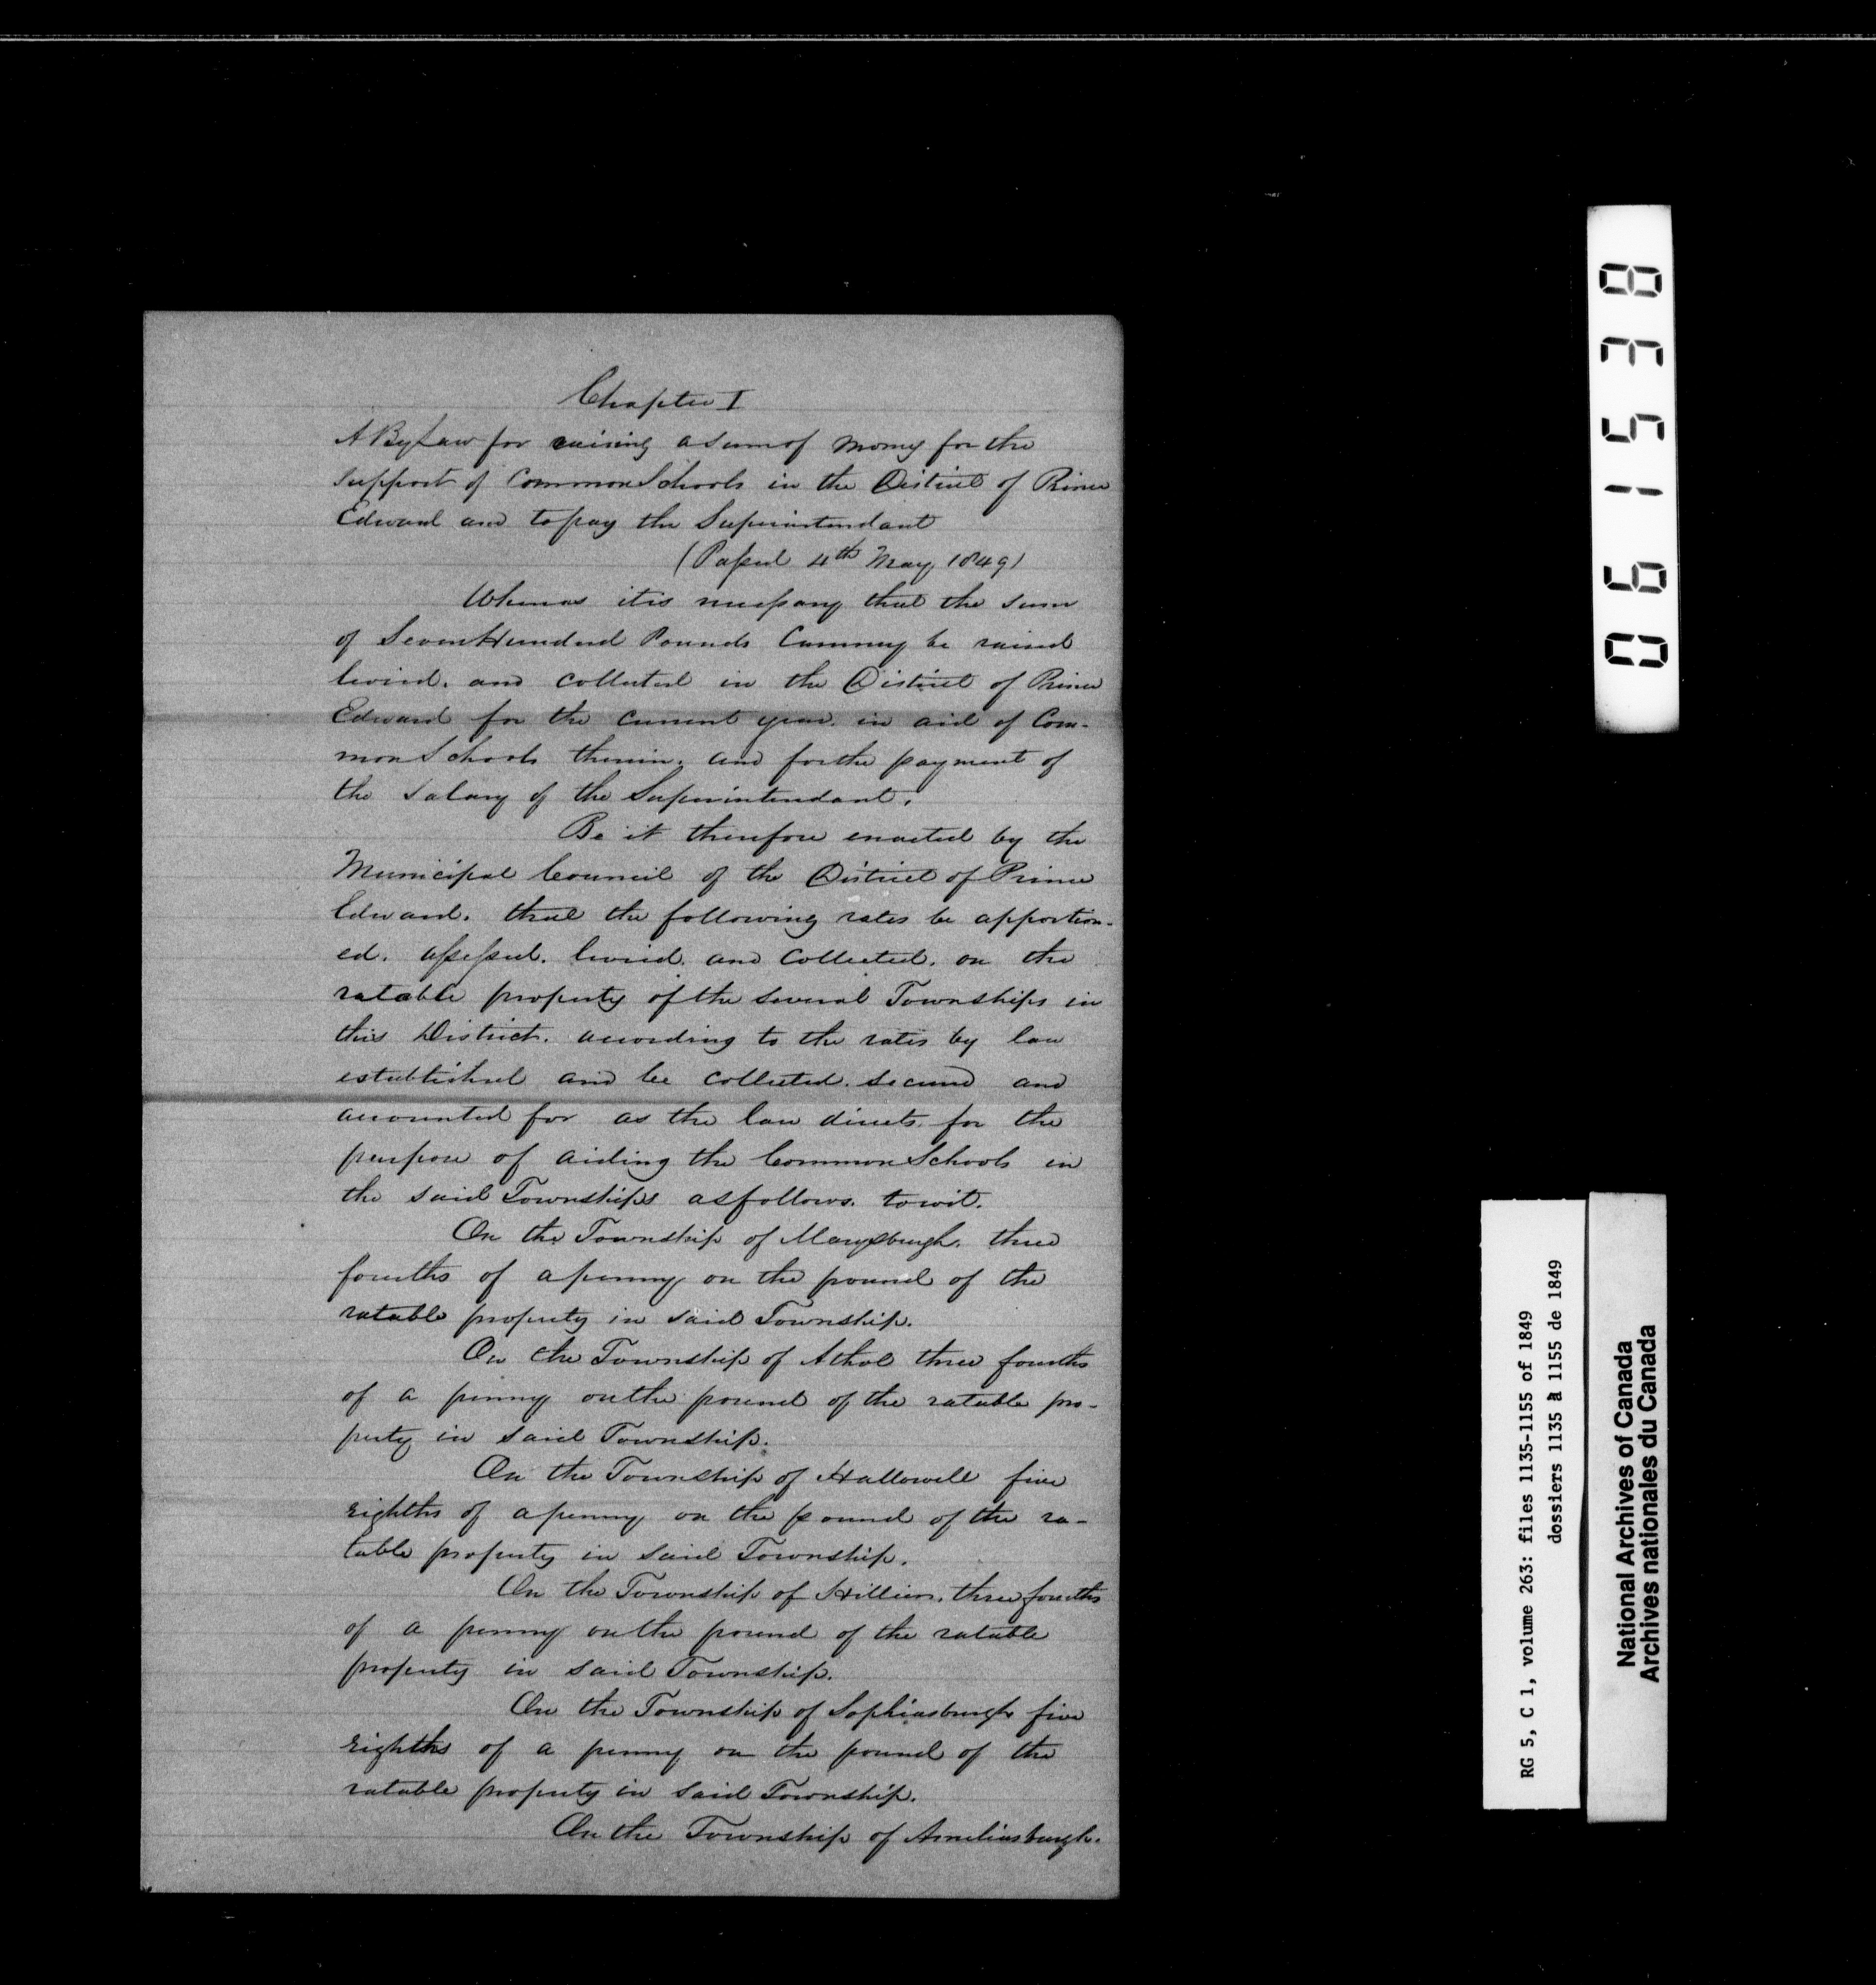 Chapter I
A By Law for raising a sum of Money for the
support of Common Schools in the District of Prince
Edward and to pay the Superintendant
(Passed 4th May 1849)
Whereas it is necessary that the sum
of Seven Hundred Pounds Currency be raised
levied. and collected in the District of Prince
Edward for the current year. in aid of Com-
mon Schools therein. and for the payment of
the Salary of the Superintendant.
Be it therefore enacted by the
Municipal Council of the District of Prince
Edward. that the following rates be apportion-
ed. assessed. levied. and Collected. on the
ratable property of the several Townships in
this District. according to the rates by law
established and be collected. secured and
accounted for as the law directs. for the
purpose of aiding the Common Schools in
the said Townships as follows. to wit.
On the Township of Marysburgh. three
fourths of a penny on the pound of the
ratable property in said Township.
On the Township of Athol three fourths
of a penny on the pound of the ratable pro-
perty in said Township.
On the Township of Hallowell five
eighths of a penny on the pound of the ra-
table property in said Township.
On the Township of Hillier. three fourths
of a penny on the pound of the ratable
property in said Township.
On the Township of Sophiasburgh five
eighths of a penny on the pound of the
ratable property in said Township.
On the Township of Ameliasburgh.
061538
RG 5, C 1, volume 263: files 1135-1155 of 1849
dossiers 1135 à 1155 de 1849
National Archives of Canada
Archives nationales du Canada